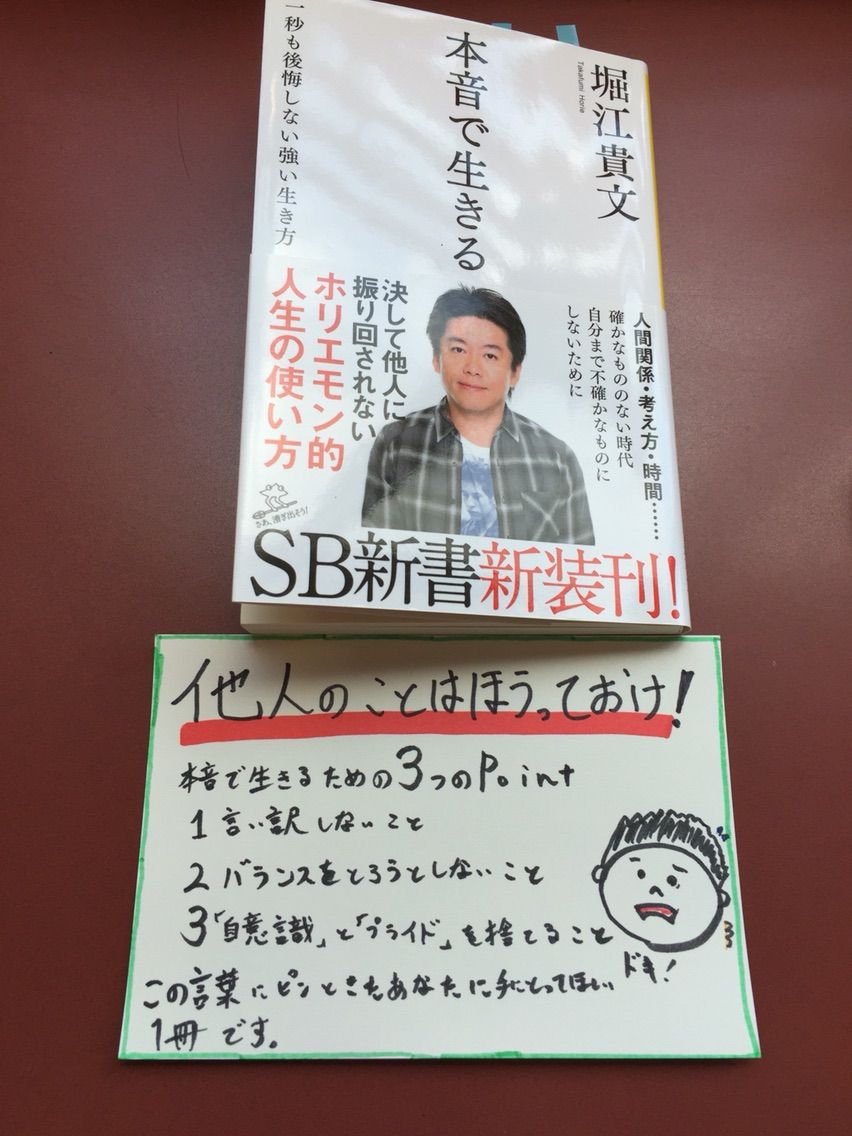 堀江貴文
Takafumi Horie
本音で生きる
一秒も後悔しない強い生き方
人間関係・考え方・時間……
確かなもののない時代
自分まで不確かなものに
しないために
決して他人に
振り回されない
ホリエモン的
人生の使い方
さあ、漕ぎ出そう!
SB新書新装刊!
他人のことはほうっておけ!
本音で生きるための3つのPoint
1 言い訳しないこと
2 バランスをとろうとしないこと
3「自意識」と「プライド」を捨てること
ドキ!
この言葉にピンときたあなたに手にとってほしい
1冊です。